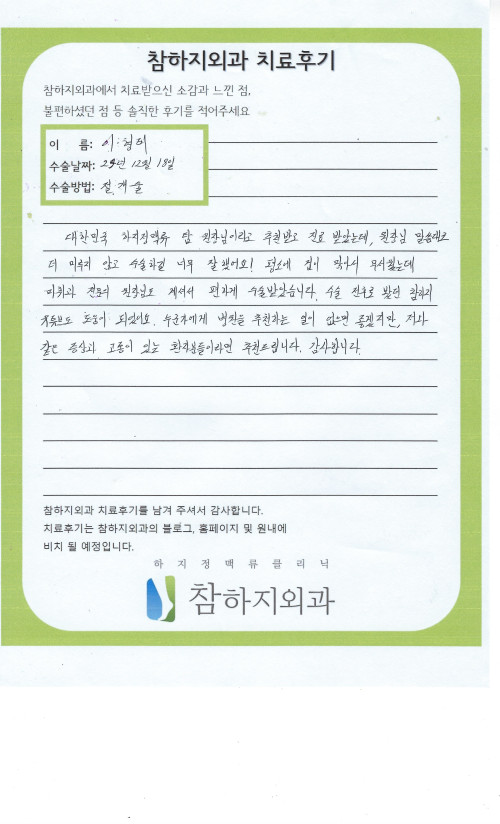 참하지외과 치료후기
참하지외과에서 치료받으신 소감과 느낀 점,
불편하셨던 점 등 솔직한 후기를 적어주세요
이 름: 이·형태
수술날짜: 25년 12월 18일
수술방법: 절개술
대한민국 하지정맥류 탑 원장님이라고 추천받고 진료 받았는데, 원장님 말씀대로
더 미루지 않고 수술하길 너무 잘했어요! 평소에 겁이 많아서 무서웠는데
마취과 전문의 원장님도 계셔서 편하게 수술받았습니다. 수술 전후로 봤던 참하지
유튜브도 도움이 되었어요. 누군가에게 병원을 추천하는 일이 없으면 좋겠지만, 저와
같은 증상과 고통이 있는 환자분들이라면 추천드립니다. 감사합니다.
참하지외과 치료후기를 남겨 주셔서 감사합니다.
치료후기는 참하지외과의 블로그, 홈페이지 및 원내에
비치 될 예정입니다.
하지정맥류클리닉
참하지외과